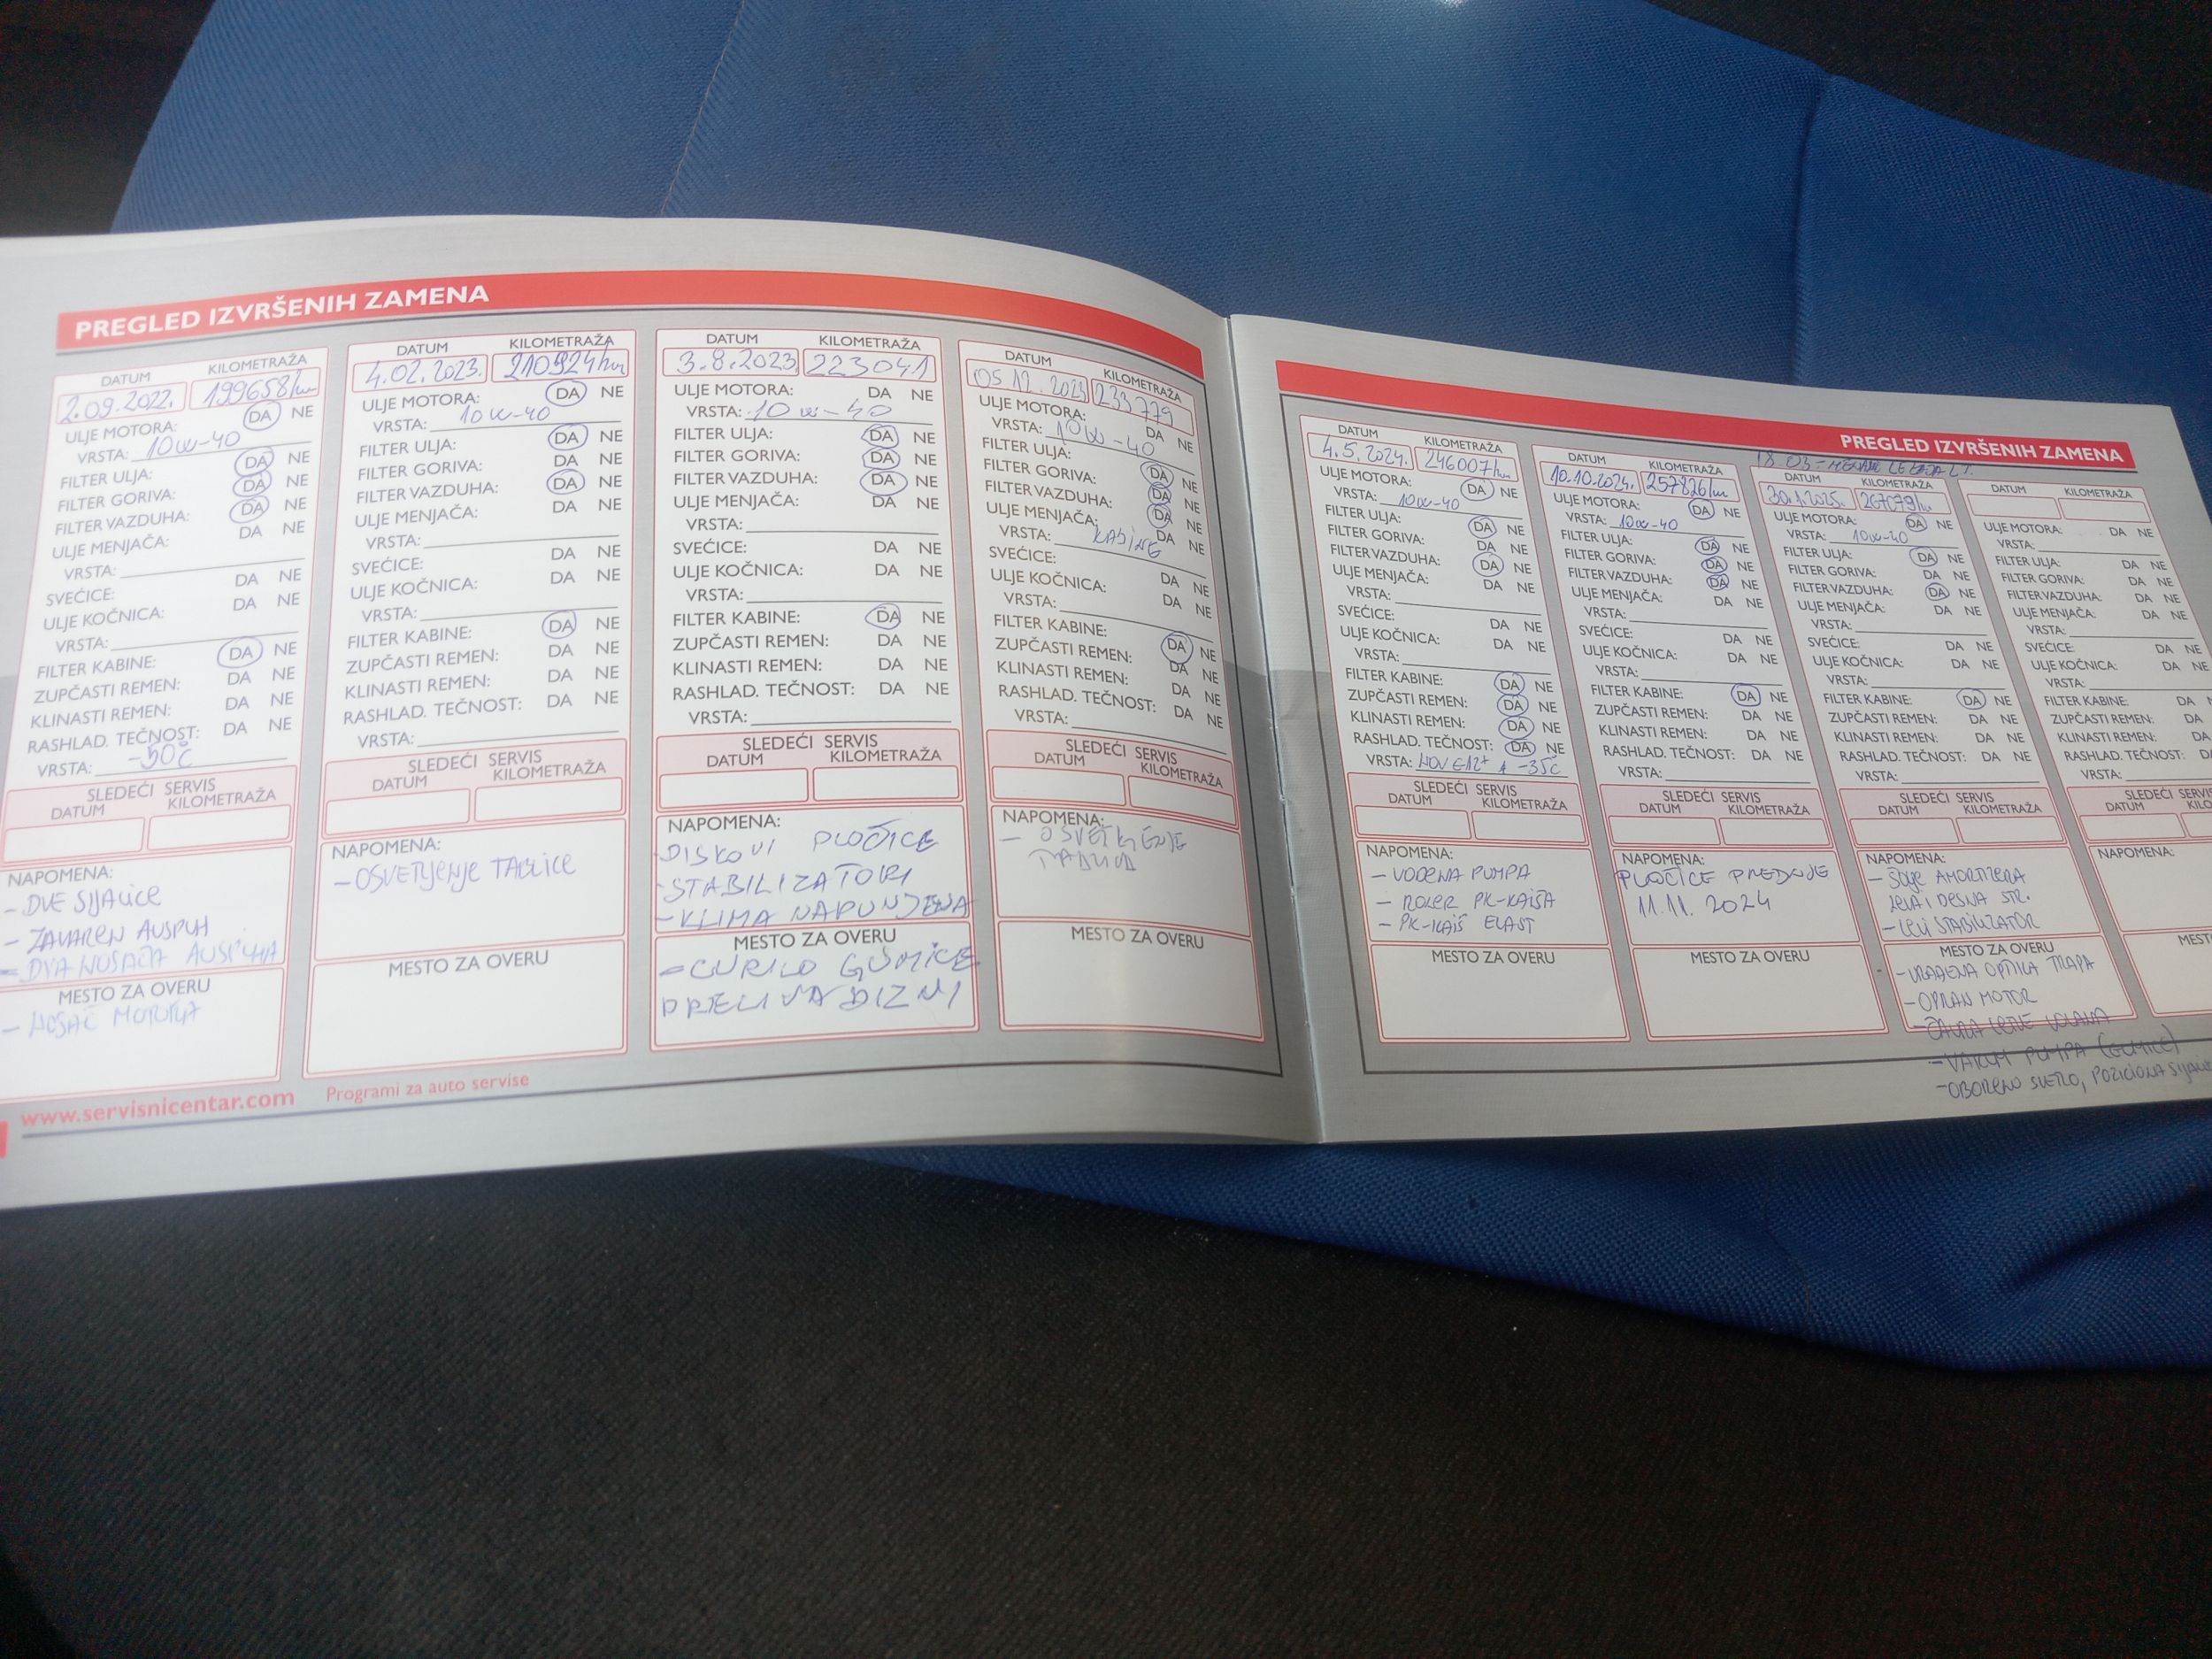 PREGLED IZVRŠENIH ZAMENA
DATUM KILOMETRAŽA
2.09.2022. 199658/km
ULJE MOTORA: DA NE
VRSTA: 10W-40
FILTER ULJA: DA NE
FILTER GORIVA: DA
FILTER VAZDUHA: DA NE
ULJE MENJAČA: DA NE
VRSTA:
SVEĆICE: DA NE
ULJE KOČNICA: DA NE
VRSTA:
FILTER KABINE: DA NE
ZUPČASTI REMEN: DA NE
KLINASTI REMEN: DA NE
RASHLAD. TEČNOST: DA NE
VRSTA: -50°C
SLEDEĆI SERVIS
DATUM KILOMETRAŽA
NAPOMENA:
- DVE SIJALICE
- ZAVAREN AUSPUH
- DVA NOSAČA AUSPUHA
MESTO ZA OVERU
- NOSAČ MOTORA
DATUM KILOMETRAŽA
4.02.2023. 210924km
ULJE MOTORA: DA NE
VRSTA: 10W-40
FILTER ULJA: DA NE
FILTER GORIVA: DA NE
FILTER VAZDUHA: DA NE
ULJE MENJAČA: DA NE
VRSTA:
SVEĆICE: DA NE
ULJE KOČNICA: DA NE
VRSTA:
FILTER KABINE: DA NE
ZUPČASTI REMEN: DA NE
KLINASTI REMEN: DA NE
RASHLAD. TEČNOST: DA NE
VRSTA:
SLEDEĆI SERVIS
DATUM KILOMETRAŽA
NAPOMENA:
- OSVETLJENJE TABLICE
MESTO ZA OVERU
DATUM KILOMETRAŽA
3.8.2023. 223041
ULJE MOTORA: DA NE
VRSTA: 10W-40
FILTER ULJA: DA NE
FILTER GORIVA: DA NE
FILTER VAZDUHA: DA NE
ULJE MENJAČA: DA NE
VRSTA:
SVEĆICE: DA NE
ULJE KOČNICA: DA NE
VRSTA:
FILTER KABINE: DA NE
ZUPČASTI REMEN: DA NE
KLINASTI REMEN: DA NE
RASHLAD. TEČNOST: DA NE
VRSTA:
SLEDEĆI SERVIS
DATUM KILOMETRAŽA
NAPOMENA:
DISKOVI PLOČICE
- STABILIZATORI
- KLIMA NAPUNJENA
MESTO ZA OVERU
- CURILO GUMICE
PRELIVA DIZNI
DATUM KILOMETRAŽA
05 12. 2023 233779
ULJE MOTORA: DA NE
VRSTA: 10W-40
FILTER ULJA: DA NE
FILTER GORIVA: DA NE
FILTER VAZDUHA: DA NE
ULJE MENJAČA: DA NE
VRSTA: KABINE
SVEĆICE: DA NE
ULJE KOČNICA: DA NE
VRSTA:
FILTER KABINE: DA NE
ZUPČASTI REMEN: DA
KLINASTI REMEN: DA NE
RASHLAD. TEČNOST: DA NE
VRSTA:
SLEDEĆI SERVIS
DATUM KILOMETRAŽA
NAPOMENA:
- OSVETLJENJE
MESTO ZA OVERU
www.servisnicentar.com Programi za auto servise
PREGLED IZVRŠENIH ZAMENA
DATUM KILOMETRAŽA
4.5.2024. 246007km
ULJE MOTORA: DA NE
VRSTA: 10W-40
FILTER ULJA: DA NE
FILTER GORIVA: DA NE
FILTER VAZDUHA: DA NE
ULJE MENJAČA: DA NE
VRSTA:
SVEĆICE: DA NE
ULJE KOČNICA: DA NE
VRSTA:
FILTER KABINE: DA NE
ZUPČASTI REMEN: DA NE
KLINASTI REMEN: DA NE
RASHLAD. TEČNOST: DA NE
VRSTA: -35C
SLEDEĆI SERVIS
DATUM KILOMETRAŽA
NAPOMENA:
- VODENA PUMPA
- ROLER PK-KAIŠA
- PK-KAIŠ ELAST
MESTO ZA OVERU
DATUM KILOMETRAŽA
10.10.2024. 257826km
ULJE MOTORA: DA NE
VRSTA: 10W-40
FILTER ULJA: DA NE
FILTER GORIVA: DA NE
FILTER VAZDUHA: DA NE
ULJE MENJAČA: DA NE
VRSTA:
SVEĆICE: DA NE
ULJE KOČNICA: DA NE
VRSTA:
FILTER KABINE: DA NE
ZUPČASTI REMEN: DA NE
KLINASTI REMEN: DA NE
RASHLAD. TEČNOST: DA NE
VRSTA:
SLEDEĆI SERVIS
DATUM KILOMETRAŽA
NAPOMENA:
PLOČICE PREDNJE
11.11. 2024
MESTO ZA OVERU
18 03 -
DATUM KILOMETRAŽA
30.1.2025. 267079km
ULJE MOTORA: DA NE
VRSTA: 10W-40
FILTER ULJA: DA NE
FILTER GORIVA: DA NE
FILTER VAZDUHA: DA NE
ULJE MENJAČA: DA NE
VRSTA:
SVEĆICE: DA NE
ULJE KOČNICA: DA NE
VRSTA:
FILTER KABINE: DA NE
ZUPČASTI REMEN: DA NE
KLINASTI REMEN: DA NE
RASHLAD. TEČNOST: DA NE
VRSTA:
SLEDEĆI SERVIS
DATUM KILOMETRAŽA
NAPOMENA:
- ŠOLJE AMORTIZERA
LEVA I DESNA STR.
- LEVI STABILIZATOR
MESTO ZA OVERU
- URAĐENA OPTIKA TRAPA
- OPRAN MOTOR
- VAKUM PUMPA (GUMICE)
- OBORENO SVETLO, POZICIONA
DATUM KILOMETRAŽA
ULJE MOTORA: DA NE
VRSTA:
FILTER ULJA: DA NE
FILTER GORIVA: DA NE
FILTER VAZDUHA: DA NE
ULJE MENJAČA: DA NE
VRSTA:
SVEĆICE: DA NE
ULJE KOČNICA: DA NE
VRSTA:
FILTER KABINE: DA
ZUPČASTI REMEN: DA
KLINASTI REMEN: DA
RASHLAD. TEČNOST:
VRSTA:
SLEDEĆI SERVIS
DATUM
NAPOMENA: